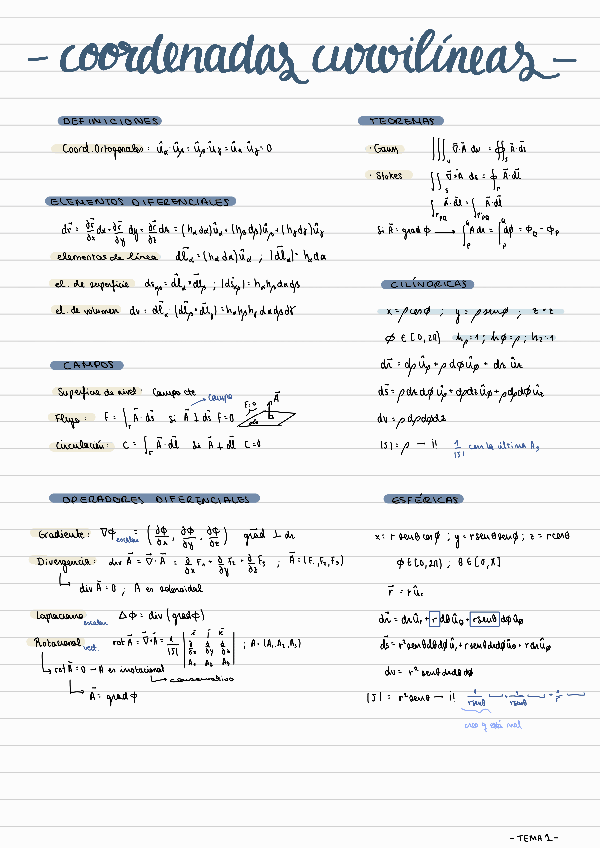 - coordenadas curvilíneas -
DEFINICIONES
Coord. Ortogonales: û_α · û_β = û_β · û_γ = û_α · û_γ = 0
ELEMENTOS DIFERENCIALES
dr⃗ = ∂r⃗/∂x dx + ∂r⃗/∂y dy + ∂r⃗/∂z dz = (h_α dα) û_α + (h_β dβ) û_β + (h_γ dγ) û_γ
elementos de línea dl⃗_α = (h_α dα) û_α ; |dl⃗_α| = h_α dα
el. de superficie
el. de volumen dv = dl⃗_α · (dl⃗_β × dl⃗_γ) = h_α h_β h_γ dα dβ dγ
CAMPOS
Superficie de nivel: campo cte
campo
Flujo: F = ∫ A⃗ · ds⃗ si A⃗ ⊥ ds⃗ F=0
F=0 A⃗
Circulación: C = ∫_Γ A⃗ · dl⃗ si A⃗ ⊥ dl⃗ C=0
OPERADORES DIFERENCIALES
Gradiente: ∇Φ escalar = (∂Φ/∂x, ∂Φ/∂y, ∂Φ/∂z) grad ⊥ ds
Divergencia: div A⃗ = ∇⃗ · A⃗ = ∂/∂x F₁ + ∂/∂y F₂ + ∂/∂z F₃ ; A⃗ = (F₁, F₂, F₃)
div A⃗ = 0 ; A es solenoidal
Laplaciano escalar ΔΦ = div (grad Φ)
Rotacional vect. rot A⃗ = ∇⃗ × A⃗ = 1/|J| | i⃗ j⃗ k⃗ ; ∂/∂x ∂/∂y ∂/∂z ; A₁ A₂ A₃ | ; A = (A₁, A₂, A₃)
rot A⃗ = 0 → A es irrotacional
conservativo
A⃗ = grad Φ
TEOREMAS
· Gauss ∭_V ∇⃗ · A⃗ dv = ∯_S A⃗ · ds⃗
· Stokes ∬_S ∇⃗ × A⃗ ds⃗ = ∮_Γ A⃗ · dl⃗
∫_ΓPQ A⃗ · dl⃗ = ∫_ΓPQ A⃗ · dl⃗
si A⃗ = grad Φ → ∫_P^Q A dr = ∫_P^Q dΦ = Φ_Q - Φ_P
CILÍNDRICAS
x = ρ cosϕ ; y = ρ senϕ ; z = z
ϕ ∈ [0, 2π) h_ρ = 1 ; hϕ = ρ ; h_z = 1
dr⃗ = dρ û_ρ + ρ dϕ û_ϕ + dz û_z
ds⃗ = ρ dz dϕ û_ρ + dρ dz û_ϕ + ρ dρ dϕ û_z
dv = ρ dρ dϕ dz
|J| = ρ → i! 1/|J| con la última A₃
ESFÉRICAS
x = r senθ cosϕ ; y = r senθ senϕ ; z = r cosθ
ϕ ∈ [0, 2π) ; θ ∈ [0, π]
r⃗ = r û_r
dr⃗ = dr û_r + r dθ û_θ + r senθ dϕ û_ϕ
ds⃗ = r² senθ dθ dϕ û_r + r senθ dr dϕ û_θ + r dr dθ û_ϕ
dv = r² senθ dr dθ dϕ
|J| = r² senθ → i! 1/r senθ 1/r senθ + 1/r
creo q está mal
- TEMA 1 -